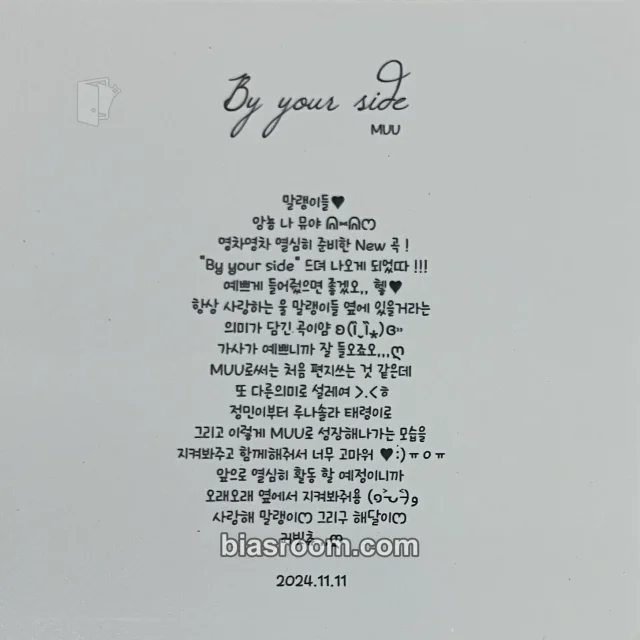 By your side
MUU
말랭이들♥
앙뇽 나 뮤야 ᕱ⑅ᕱ♡
영차영차 열심히 준비한 New 곡 !
"By your side" 드뎌 나오게 되었따 !!!
예쁘게 들어줬으면 좋겠오,, 헿♥
항상 사랑하는 울 말랭이들 옆에 있을거라는
의미가 담긴 곡이얌
가사가 예쁘니까 잘 들오죠오,,,ღ
MUU로써는 처음 편지쓰는 것 같은데
또 다른의미로 설레여 >.<ㅎ
정민이부터 루나솔라 태령이로
그리고 이렇게 MUU로 성장해나가는 모습을
지켜봐주고 함께해줘서 너무 고마워 ♥:)ㅠㅇㅠ
앞으로 열심히 활동 할 예정이니까
오래오래 옆에서 지켜봐줘용
사랑해 말랭이♡ 그리구 해달이♡
biasroom.com
2024.11.11